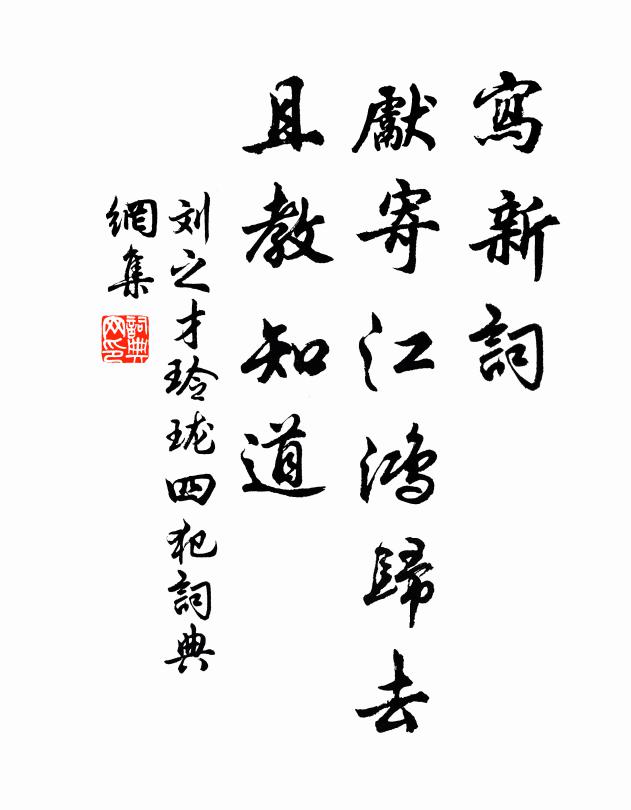 寫新詞
獻寄江鴻歸去
且教知道
刘之才玲珑四犯詞典
網集
詞典
网印